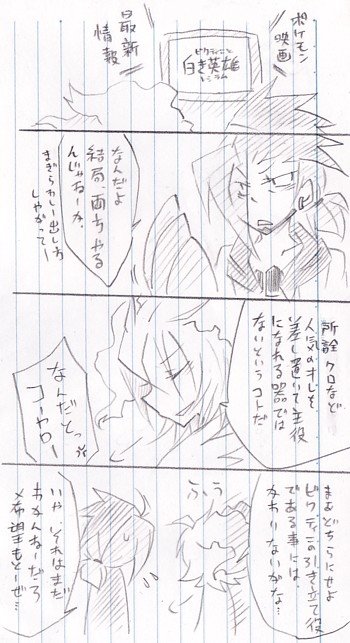 ポケモン
映画
ビクティニと
白き英雄
レシラム
最新
情報
なんだよ
結局、両方やる
んじゃねーか。
まぎらわしー出し方
しやがってー
所詮クロなど
人気のオレを
差し置いて主役
になれる器では
ないというコトだ
なんだとっ
コーヤロー
まぁどちらにせよ
ビクティニの引き立て役
である事には、
かわりないがな…
ふぅ
いや、それはまだ
わかんねーだろ
希望もとーぜ…